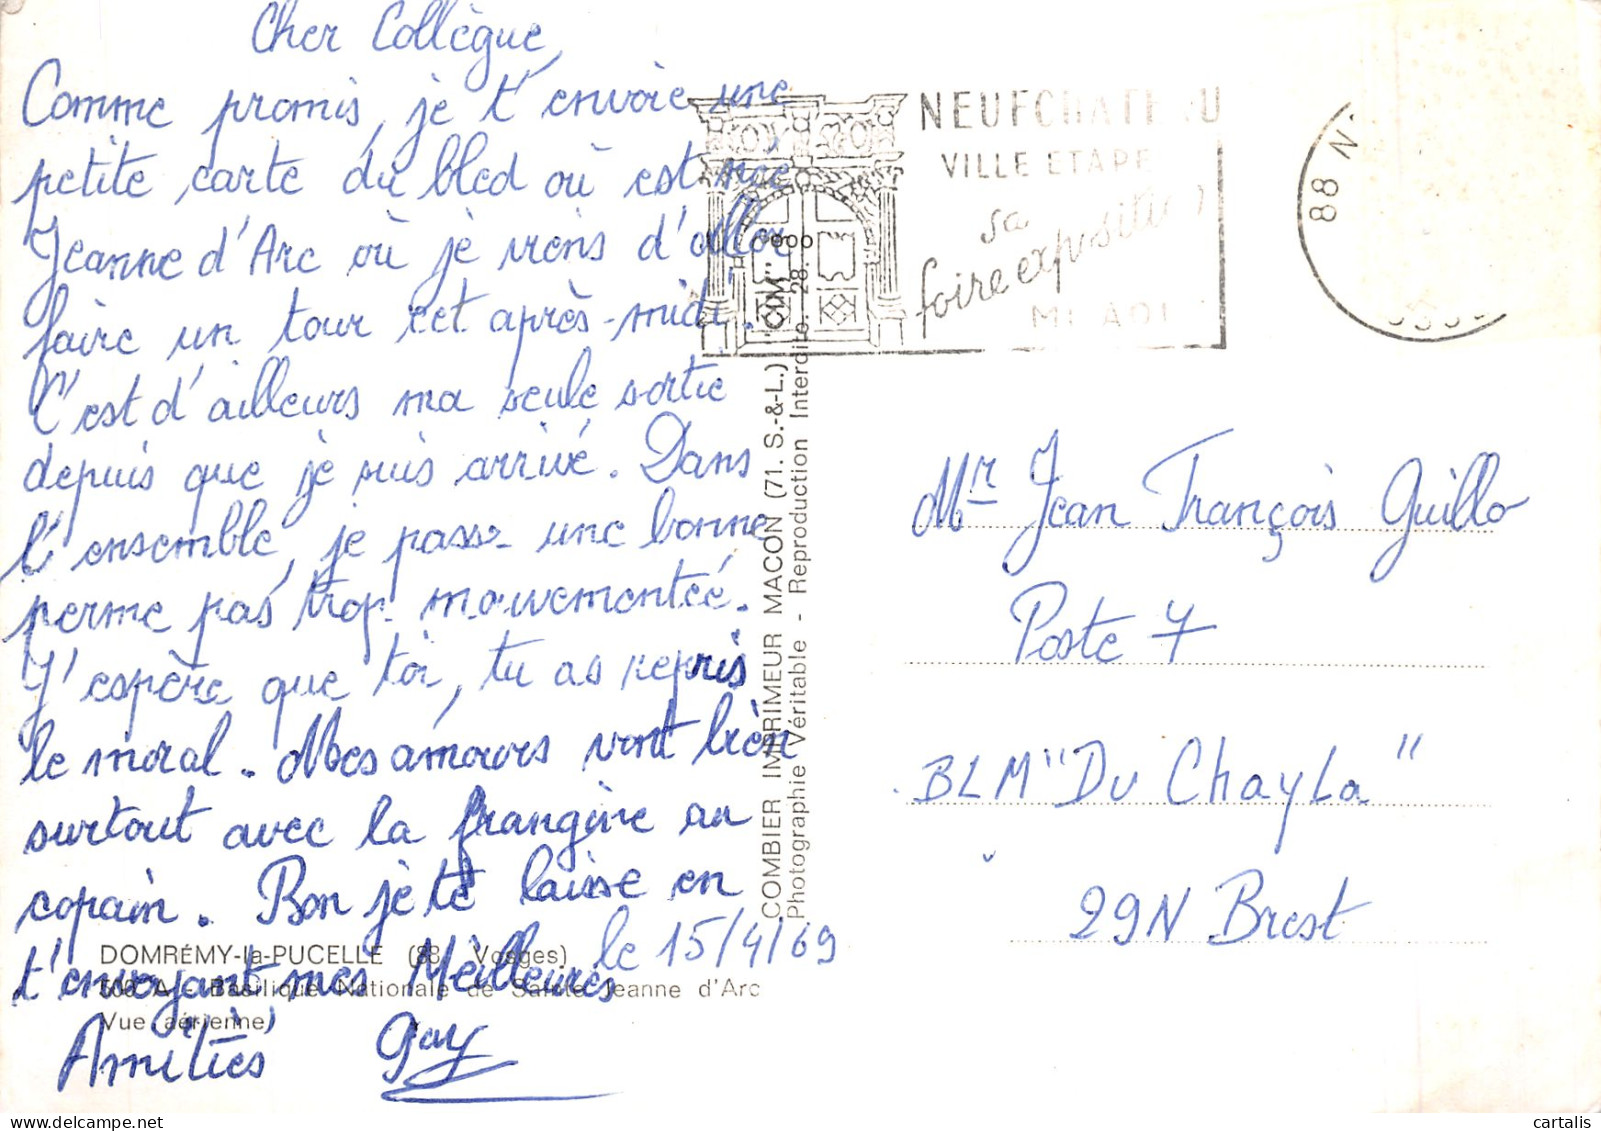 Cher Collègue,
Comme promis, je t'envoie une
petite carte du bled où est née
Jeanne d'Arc où je viens d'aller
faire un tour cet après-midi.
C'est d'ailleurs ma seule sortie
depuis que je suis arrivé. Dans
l'ensemble, je passe une bonne
perme pas trop mouvementée.
J'espère que toi, tu as repris
le moral. Mes amours vont bien
surtout avec la frangine au
copain. Bon je te laisse en
t'envoyant mes Meilleures
Amitiés
Guy
le 15/4/69
DOMRÉMY-la-PUCELLE (88. Vosges)
A - Basilique Nationale de Sainte Jeanne d'Arc
(Vue aérienne)
COMBIER IMPRIMEUR MACON (71. S.-&-L.) "CIM"
Photographie Véritable - Reproduction Interdite. 28.900
NEUFCHATEAU
VILLE ETAPE
sa
foire exposition
MI-AOUT
88 N
Mr Jean François Guillo
Poste 7
BLM "Du Chayla"
29N Brest
cartalis